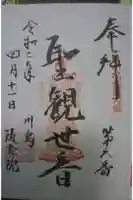 奉拝
第六番
聖観世音
令和二年
四月十一日
川島